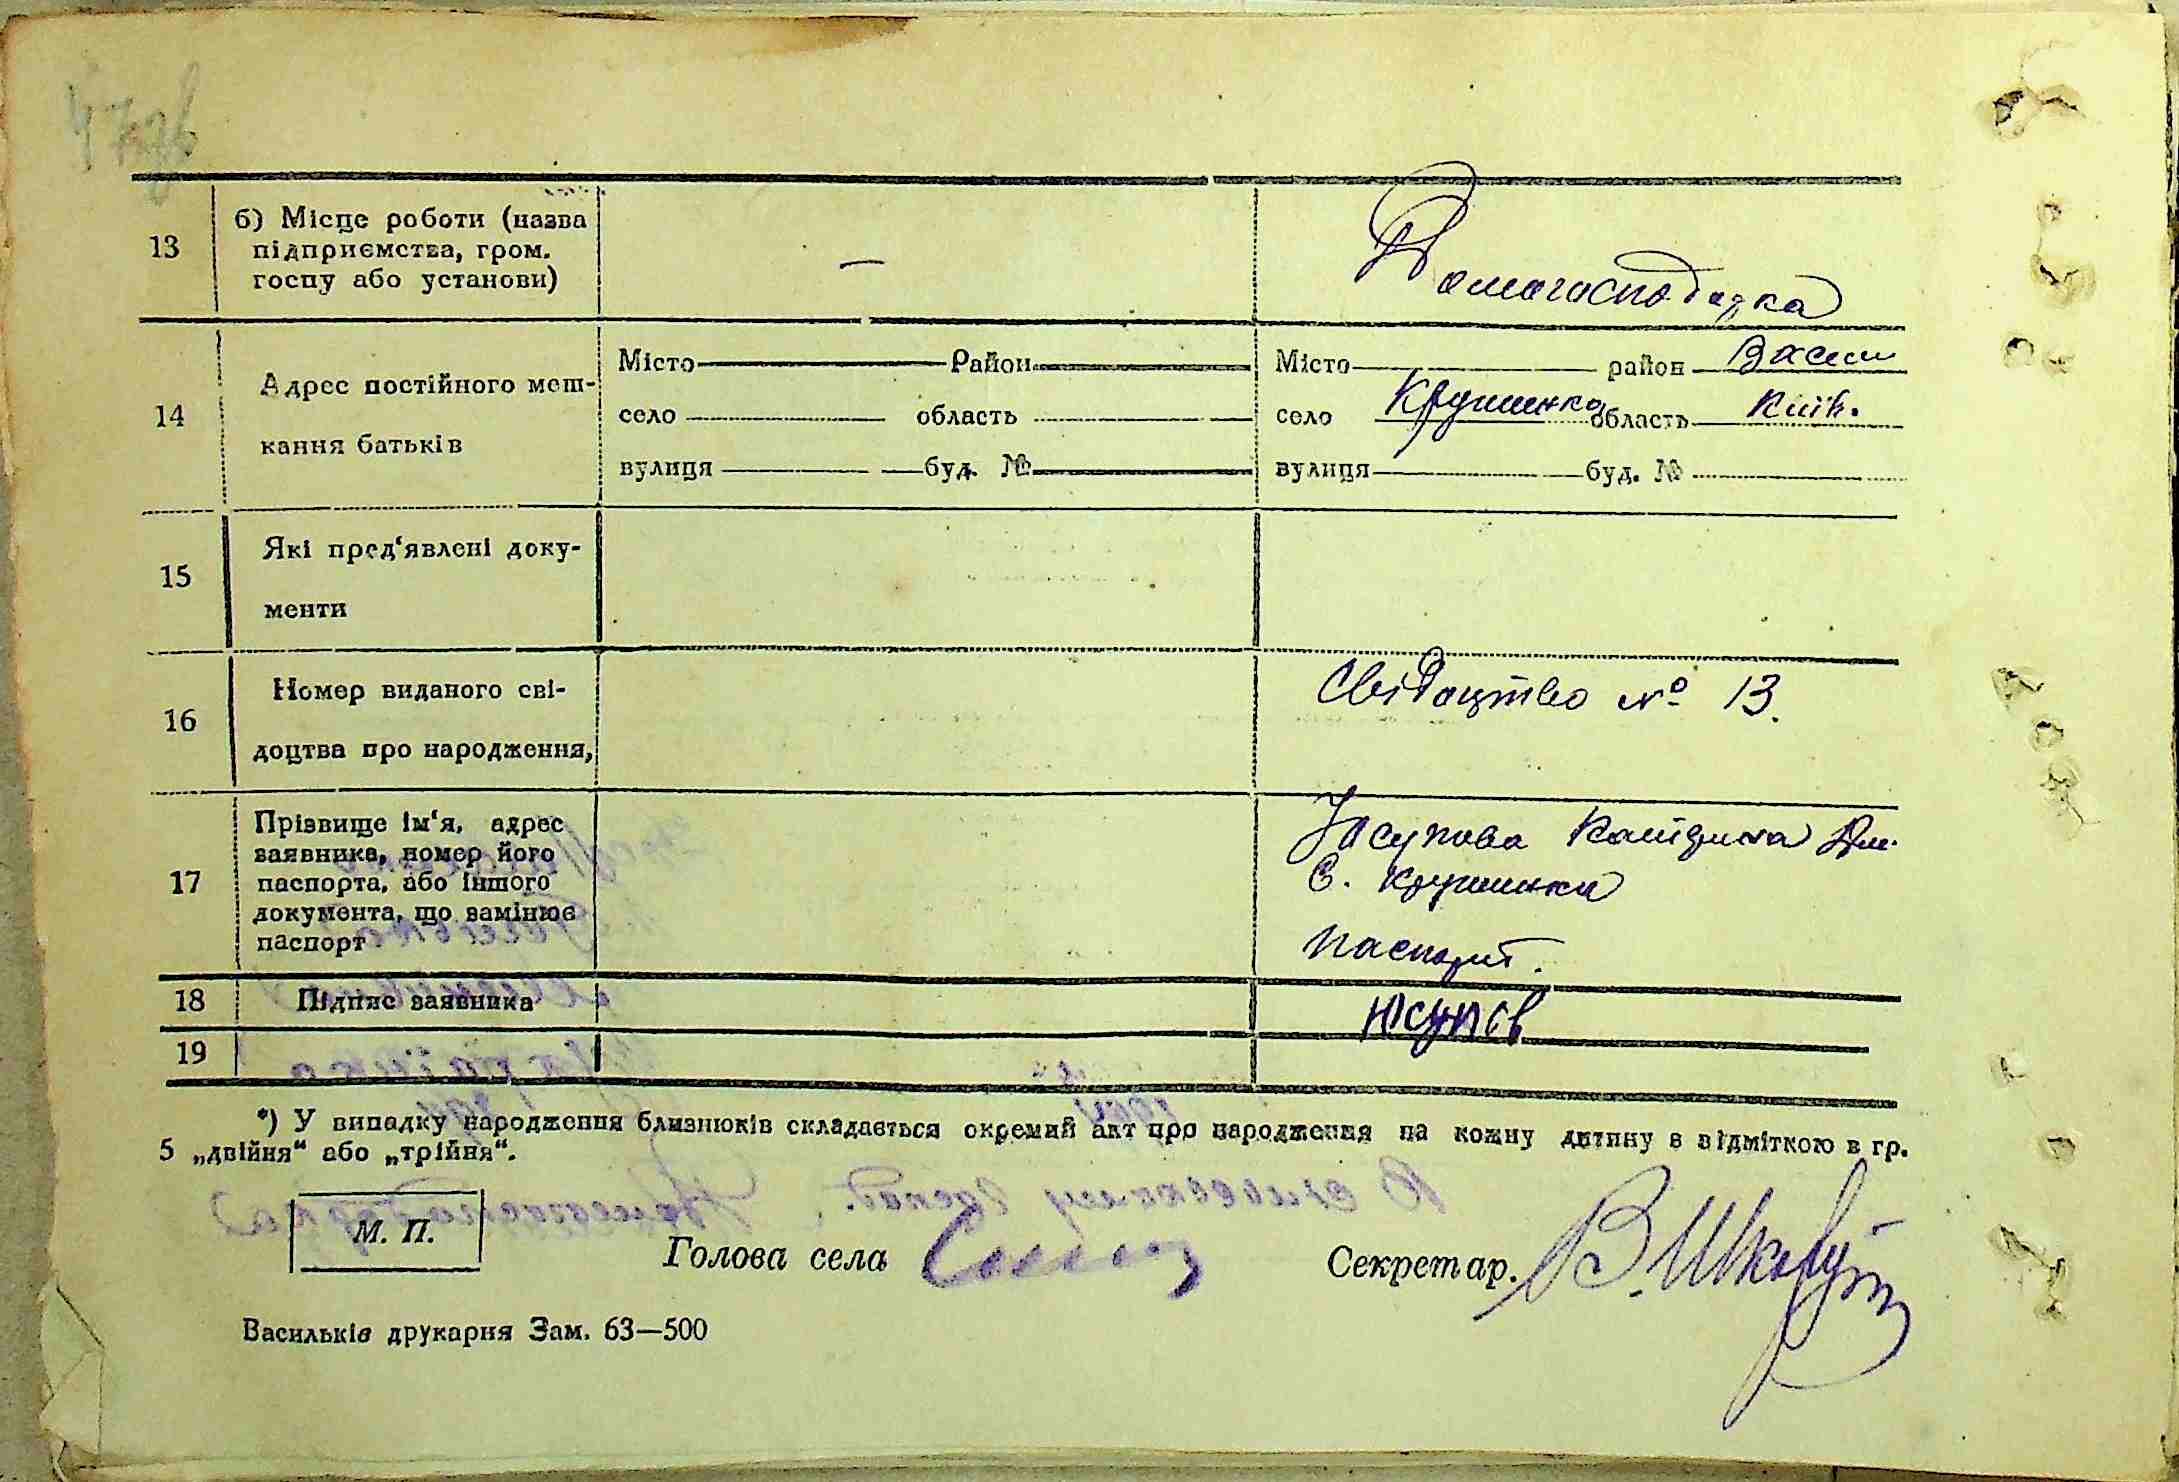 47зв
13
б) Місце роботи (назва
підприємства, гром.
госпу або установи)
—
Домогосподарка
14
Адрес постійного меш-
кання батьків
Місто Район
село область
вулиця буд. №
Місто район Васил
село Крушинка область Київ.
вулиця буд. №
15
Які пред‘явлені доку-
менти
16
Номер виданого сві-
доцтва про народження,
Свідоцтво № 13.
17
Прізвище ім‘я, адрес
заявника, номер його
паспорта, або іншого
документа, що замінює
паспорт
Юсупова Катерина
С. Крушинка
паспорт.
18
Підпис заявника
Юсупов
19
*) У випадку народження близнюків складається окремий акт про народження на кожну дитину з відміткою в гр.
5 „двійня“ або „трійня“.
М. П.
Голова села
Секретар.
Васильків друкарня Зам. 63—500